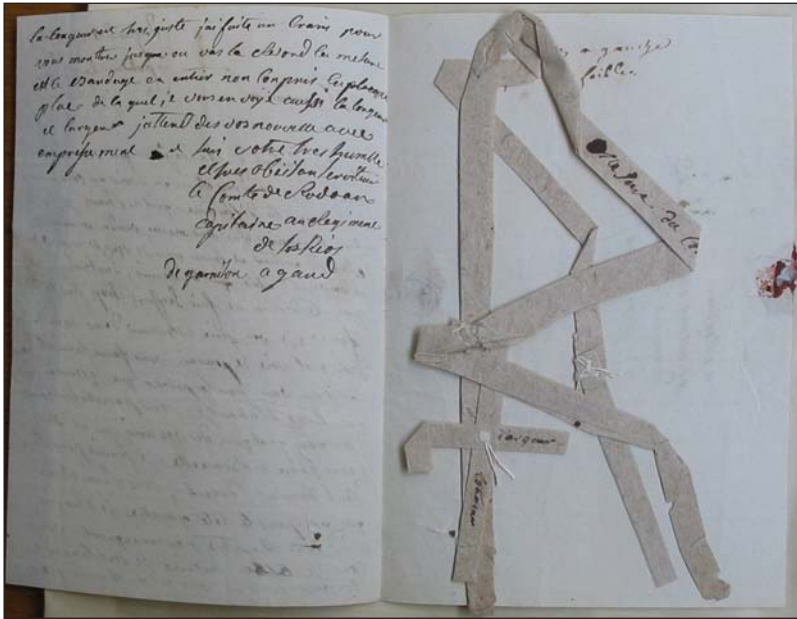 la longeur est tres juste jai faite un Crains pour
vous montrer jusque ou vas la second les mesure
est le Bandage en entier non Conpris les
plac de la quel je vous envoyé aussi la longeur
et largeur jattend des vos nouvelle avec
empressement et suis votre tres humble
et tres obeisan serviteur
le Comte de Rodoan
Capitaine au Regiment
de los Rios
de garnison a gand
a gauche
faible
Mesure du Co
largeur